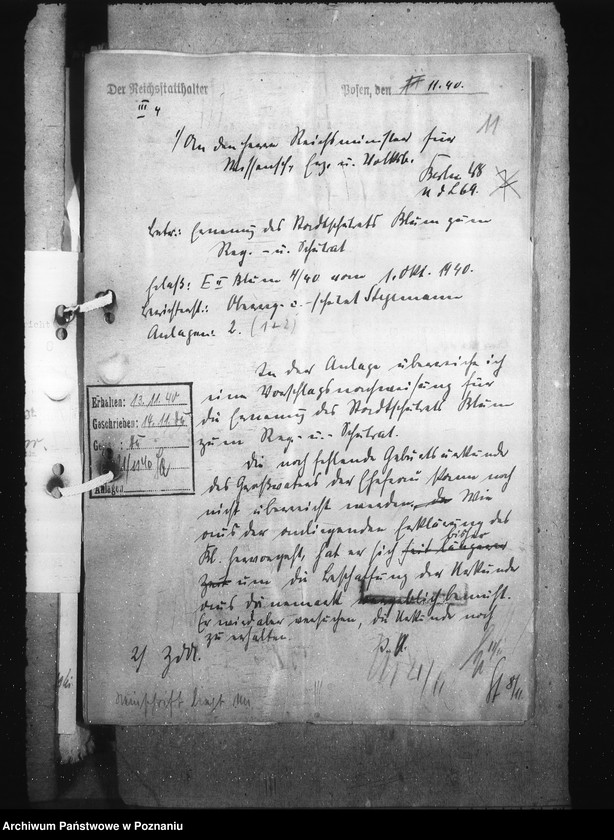 Der Reichsstatthalter
Posen, den 11.40.
III 4
11
1/ An den Herrn Reichsminister für
Wissensch., Erz. u. Volksb.
Berlin W8
U d L 69.
Betr.: Ernenng des Stadtschulrats Blum zum
Reg. - u. Schulrat
Erlaß: E II Blum 4/40 vom 1. Okt. 1940.
Berichterst.: Oberreg.- u. -schulrat Stegemann
Anlagen: 2. (1+2)
In der Anlage überreiche ich
eine Vorschlagsnachweisung für
die Ernenng des Stadtschulrats Blum
zum Reg.- u. - Schulrat.
Die noch fehlende Geburtsurkunde
des Großvaters der Ehefrau kann noch
nicht überreicht werden, da Wie
aus der anliegenden Erklärung des
Bl. hervorgeht, hat er sich seit längerer bisher
Zeit um die Beschaffung der Urkunde
aus Dänemark vergeblich bemüht.
Er wird aber versuchen, die Urkunde noch
zu erhalten.
2) ZdA.
Erhalten: 13.11.40
Geschrieben: 14.11.
Anlagen
Reinschrift liegt
21/11
Archiwum Państwowe w Poznaniu